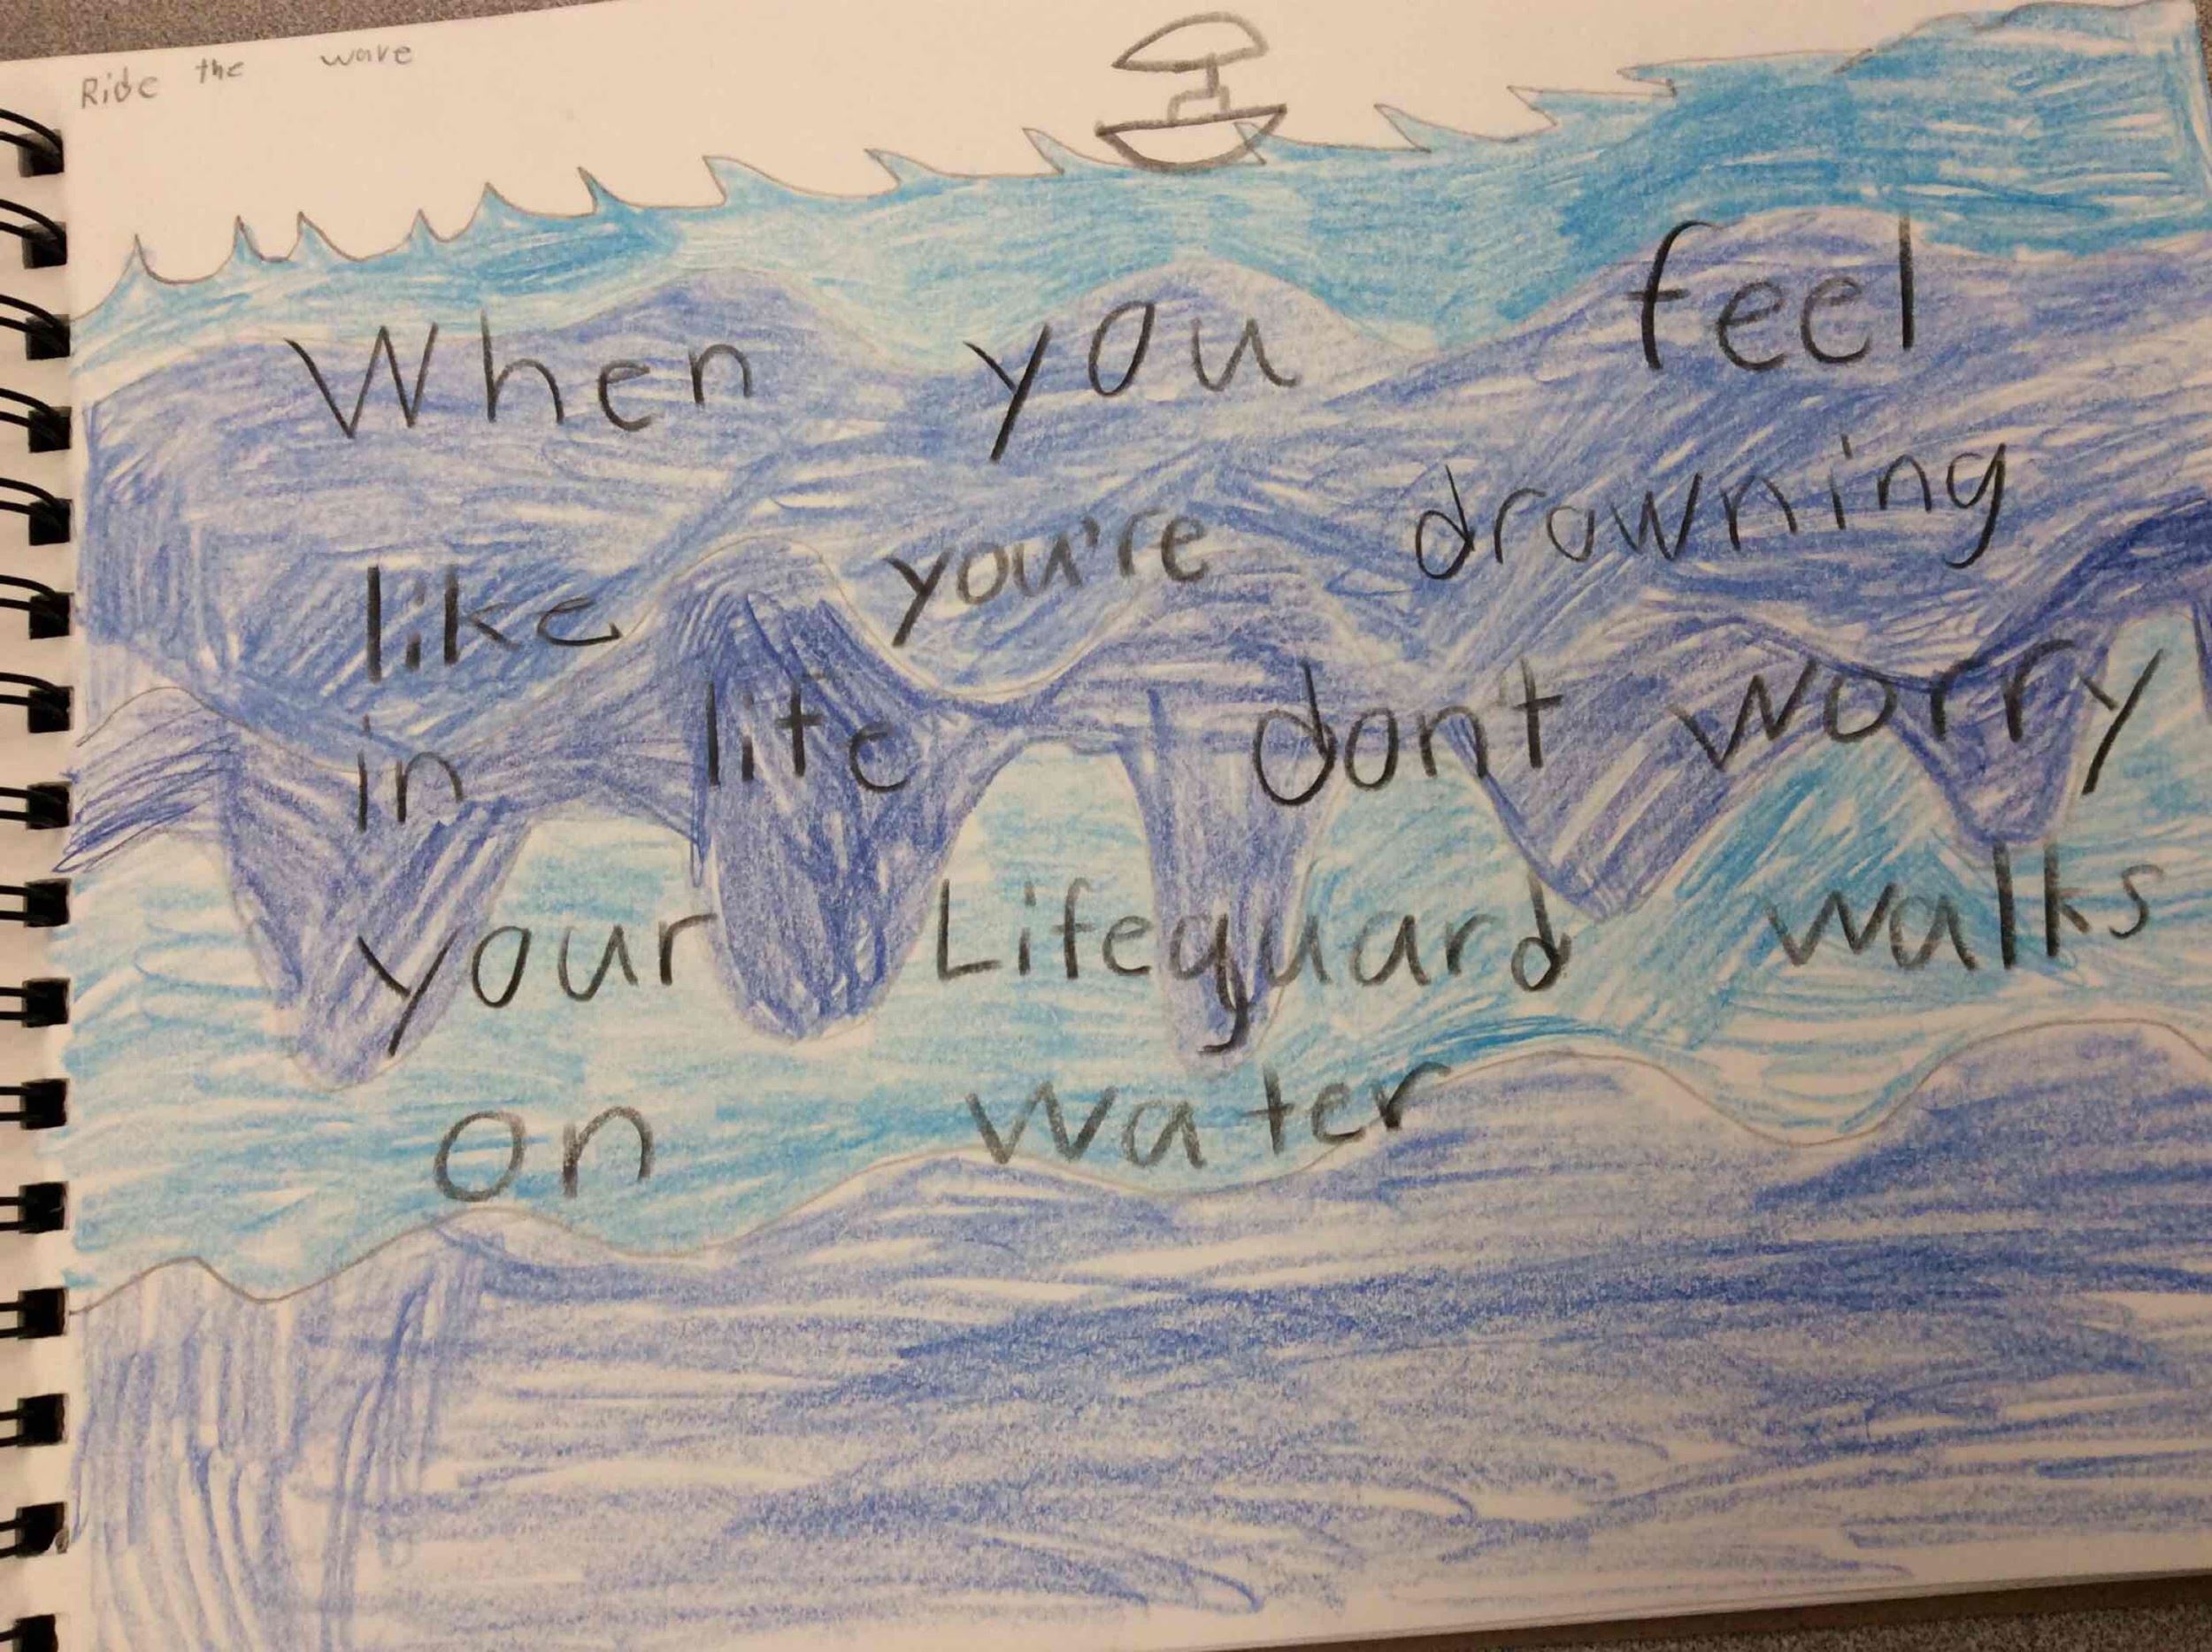 Ride the wave
When you feel
like you're drowning
in life dont worry
your Lifeguard walks
on water